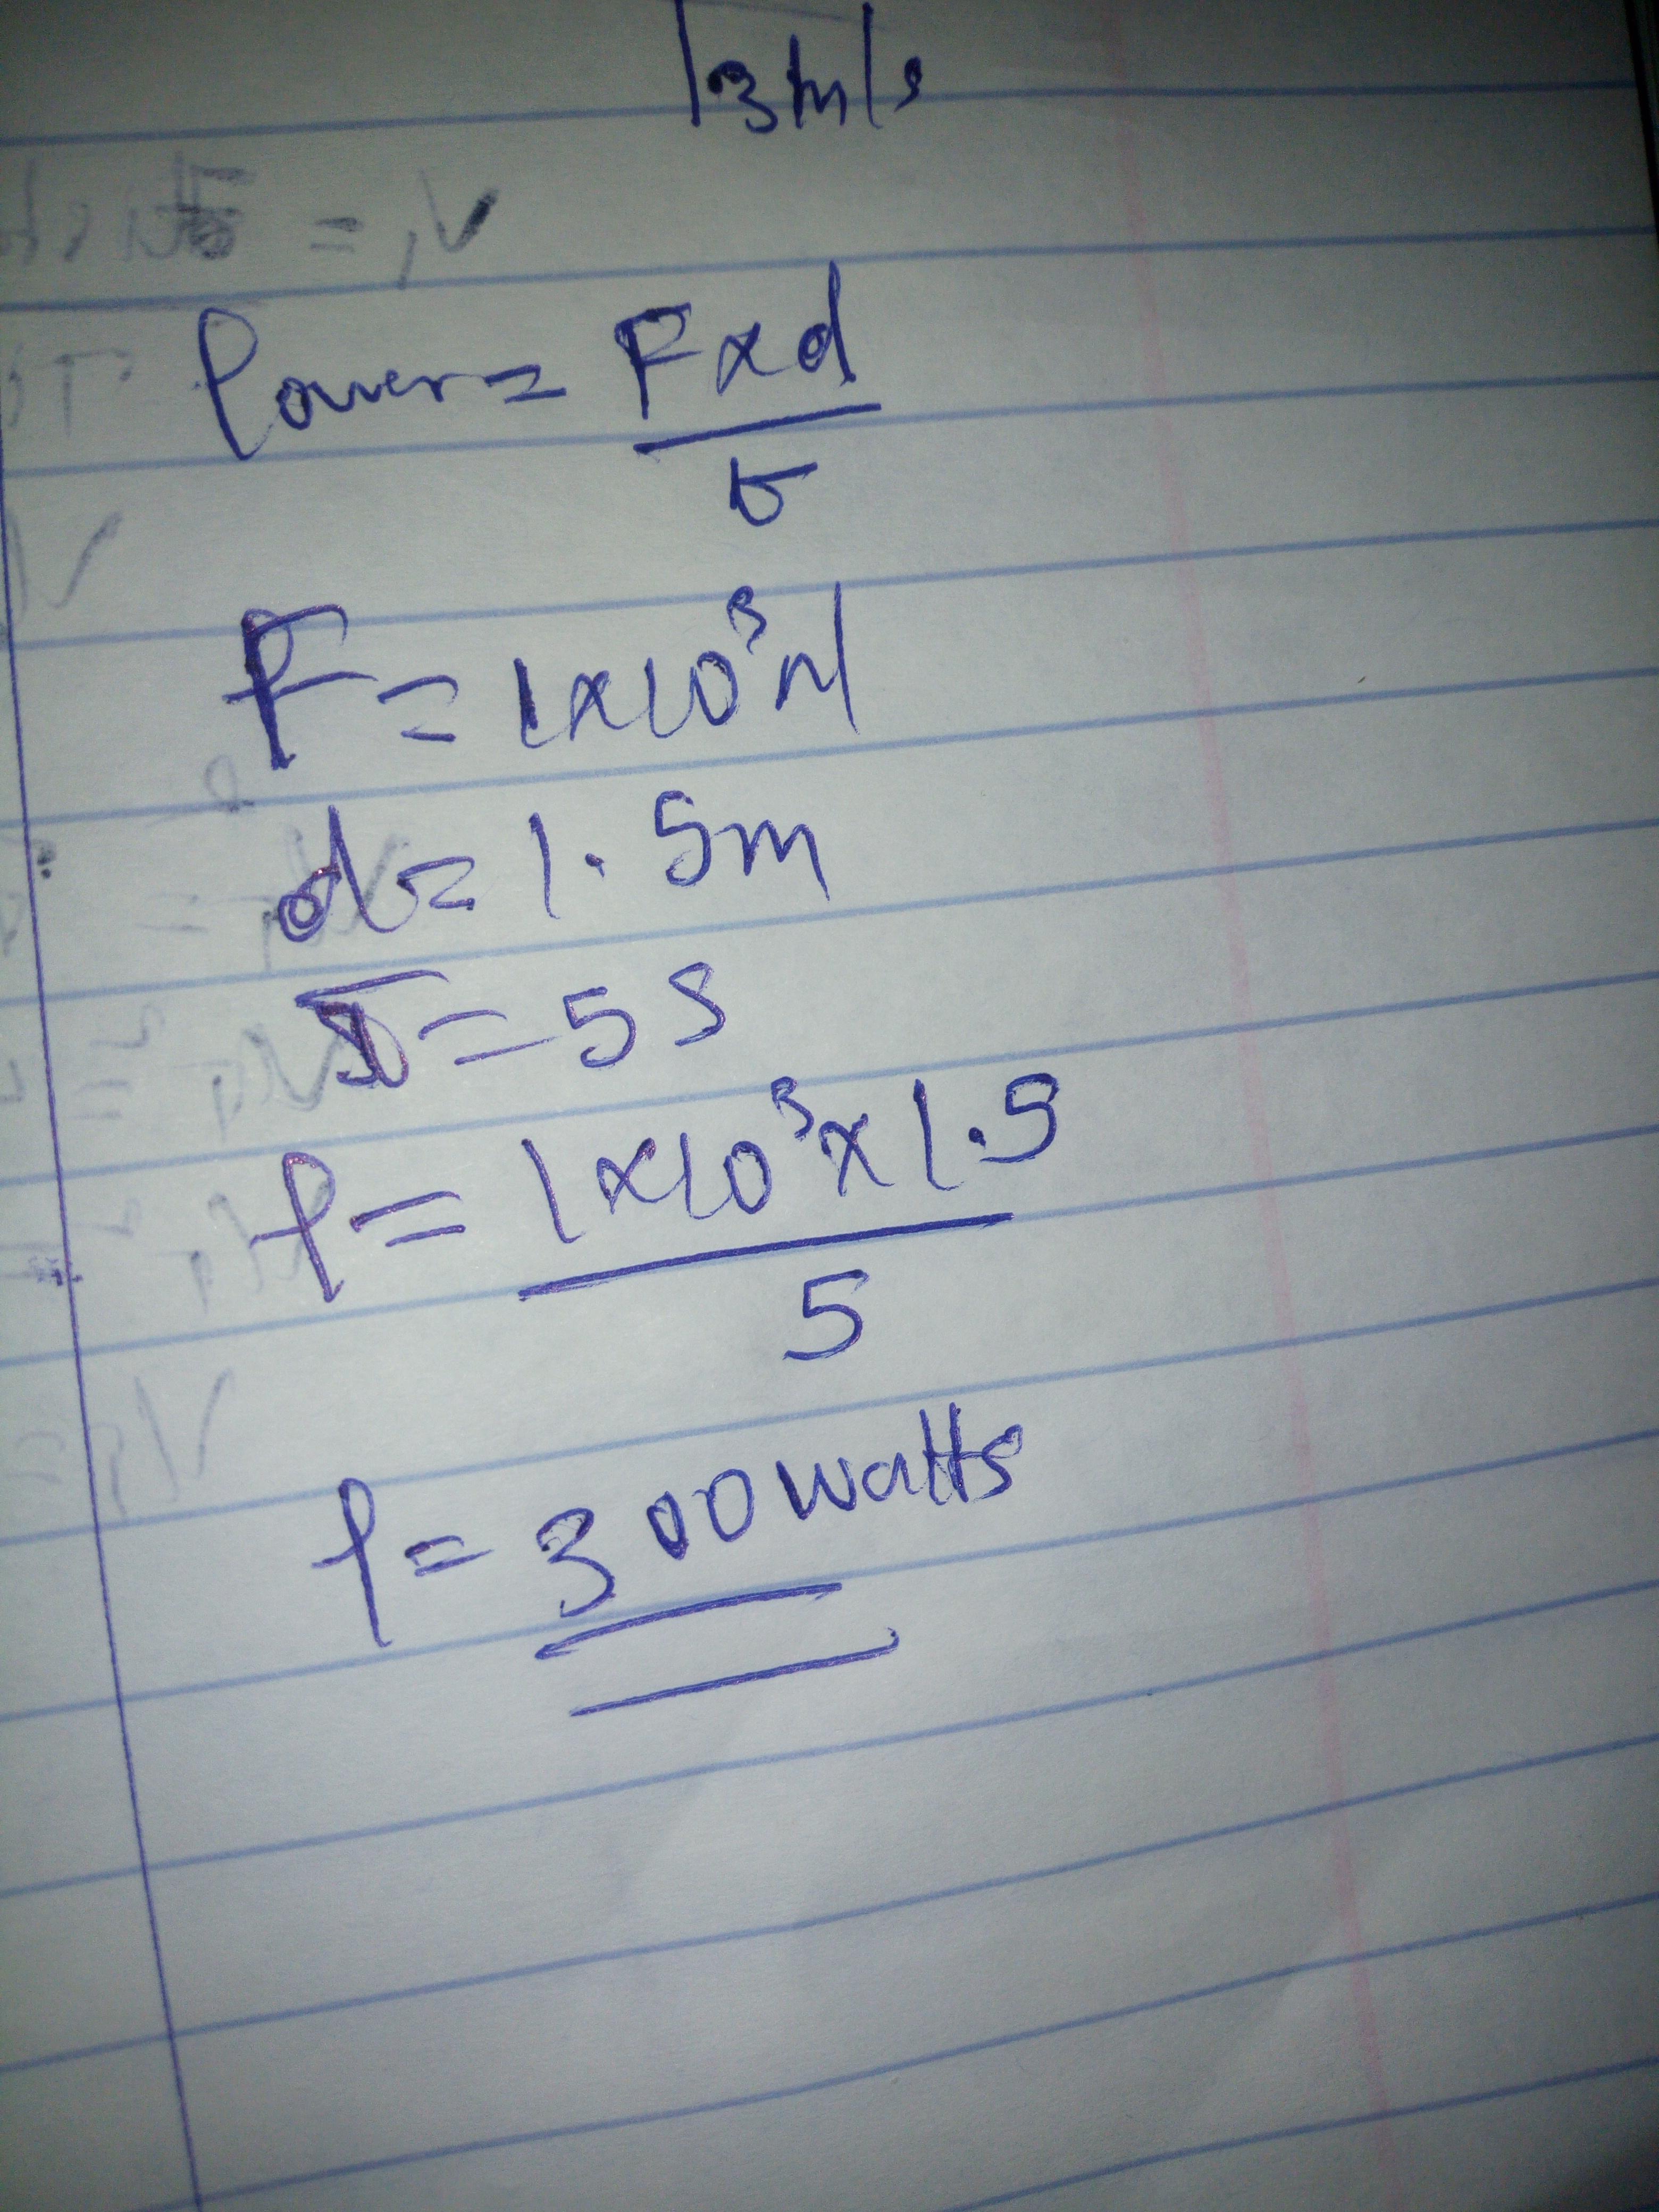 13m/s
Power = F x d
t
F = 1x10³N
d = 1.5m
t = 5s
P = 1x10³x1.5
5
P = 300watts